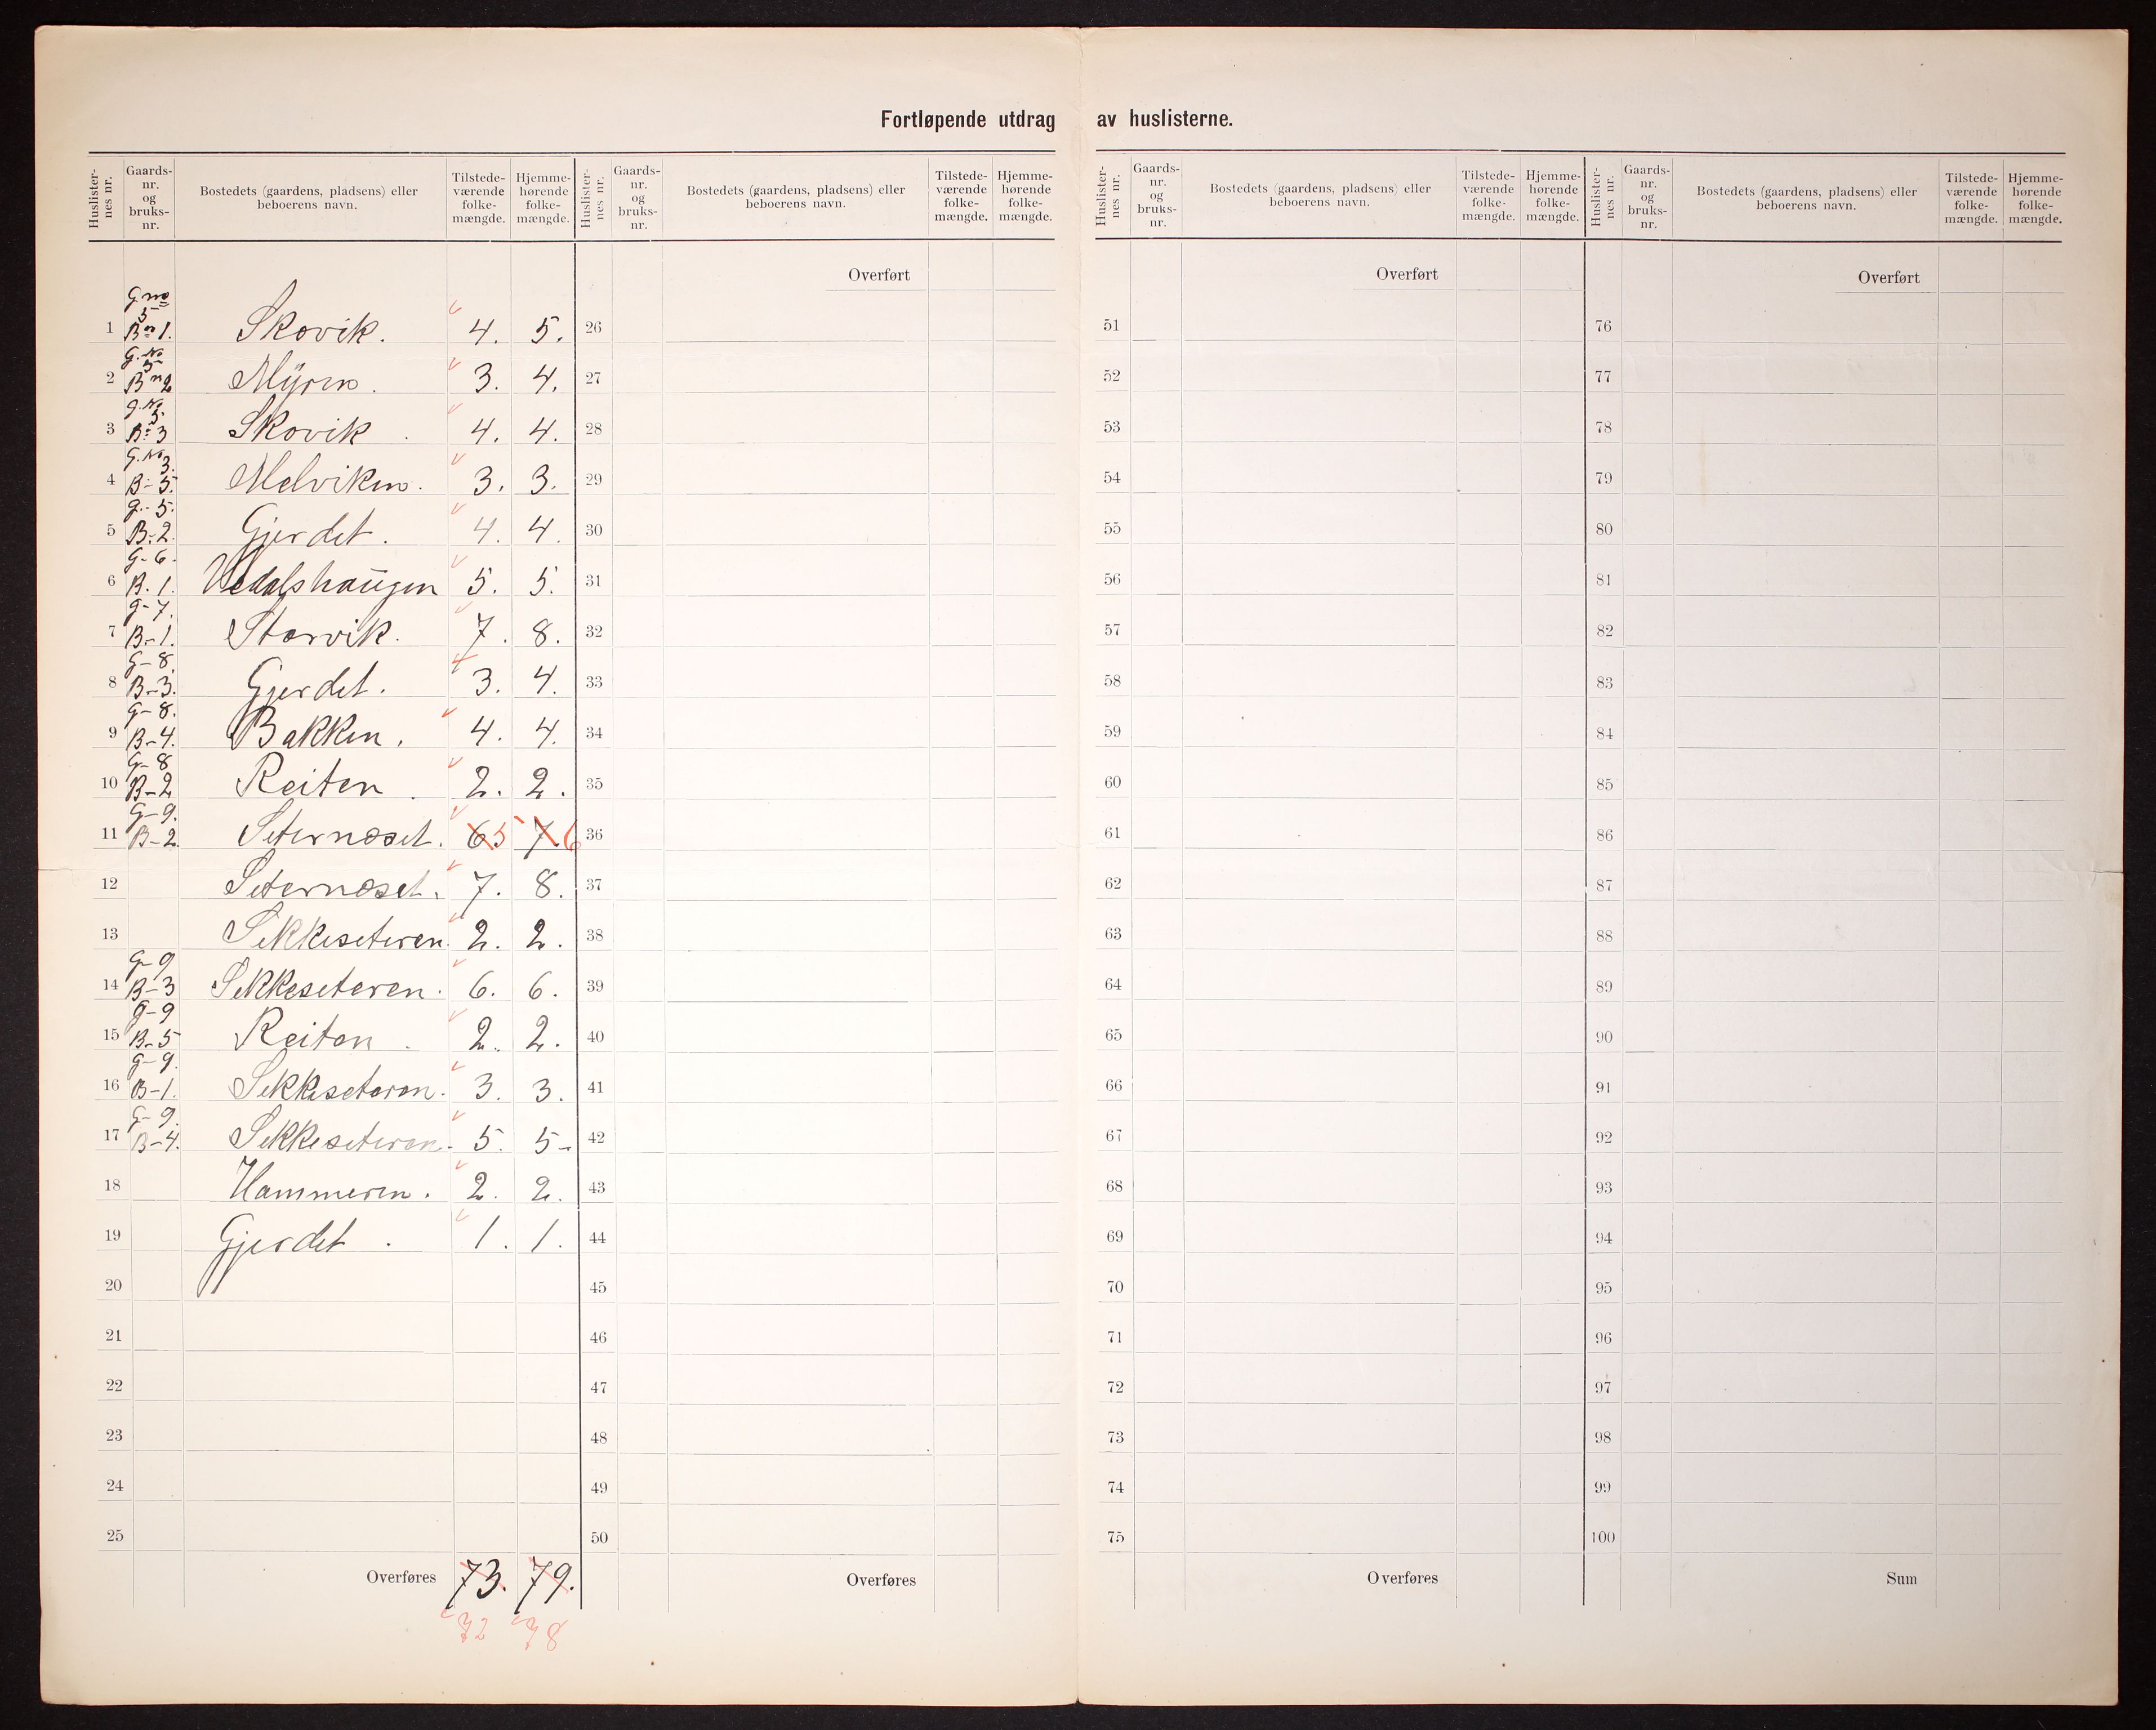 Fortløpende utdrag av huslisterne.
Huslister-nes nr. Gaards-nr. og bruks-nr. Bostedets (gaardens, pladsens) eller beboerens navn. Tilstede-værende folke-mængde. Hjemme-hørende folke-mængde.
G no 5
1 B n 1. Skovik. 4. 5.
G. No 5
2 B n 2 Mÿren. 3. 4.
G. No 5.
3 B: 3 Skovik. 4. 4.
G. No 3.
4 B- 5. Melviken. 3. 3.
G.- 5.
5 B- 2. Gjerdet. 4. 4.
G- 6.
6 B. 1. Vedalshaugen 5. 5.
G- 7.
7 B- 1. Storvik. 7. 8.
G- 8.
8 B- 3. Gjerdet. 3. 4.
G- 8.
9 B- 4. Bakken. 4. 4.
G- 8
10 B- 2 Reiten. 2. 2.
G- 9.
11 B- 2. Seternæset. 6. 5 7. 6
12 Seternæset. 7. 8.
13 Sekkeseteren. 2. 2.
G- 9
14 B- 3 Sekkeseteren. 6. 6.
G- 9
15 B- 5 Reiten. 2. 2.
G- 9.
16 B- 1. Sekkeseteren. 3. 3.
G- 9.
17 B- 4. Sekkeseteren. 5. 5-
18 Hammeren. 2. 2.
19 Gjerdet. 1. 1.
20
21
22
23
24
25
Overføres 73. 79.
72 78
Huslister-nes nr. Gaards-nr. og bruks-nr. Bostedets (gaardens, pladsens) eller beboerens navn. Tilstede-værende folke-mængde. Hjemme-hørende folke-mængde.
Overført
26
27
28
29
30
31
32
33
34
35
36
37
38
39
40
41
42
43
44
45
46
47
48
49
50
Overføres
Huslister-nes nr. Gaards-nr. og bruks-nr. Bostedets (gaardens, pladsens) eller beboerens navn. Tilstede-værende folke-mængde. Hjemme-hørende folke-mængde.
Overført
51
52
53
54
55
56
57
58
59
60
61
62
63
64
65
66
67
68
69
70
71
72
73
74
75
Overføres
Huslister-nes nr. Gaards-nr. og bruks-nr. Bostedets (gaardens, pladsens) eller beboerens navn. Tilstede-værende folke-mængde. Hjemme-hørende folke-mængde.
Overført
76
77
78
79
80
81
82
83
84
85
86
87
88
89
90
91
92
93
94
95
96
97
98
99
100
Sum